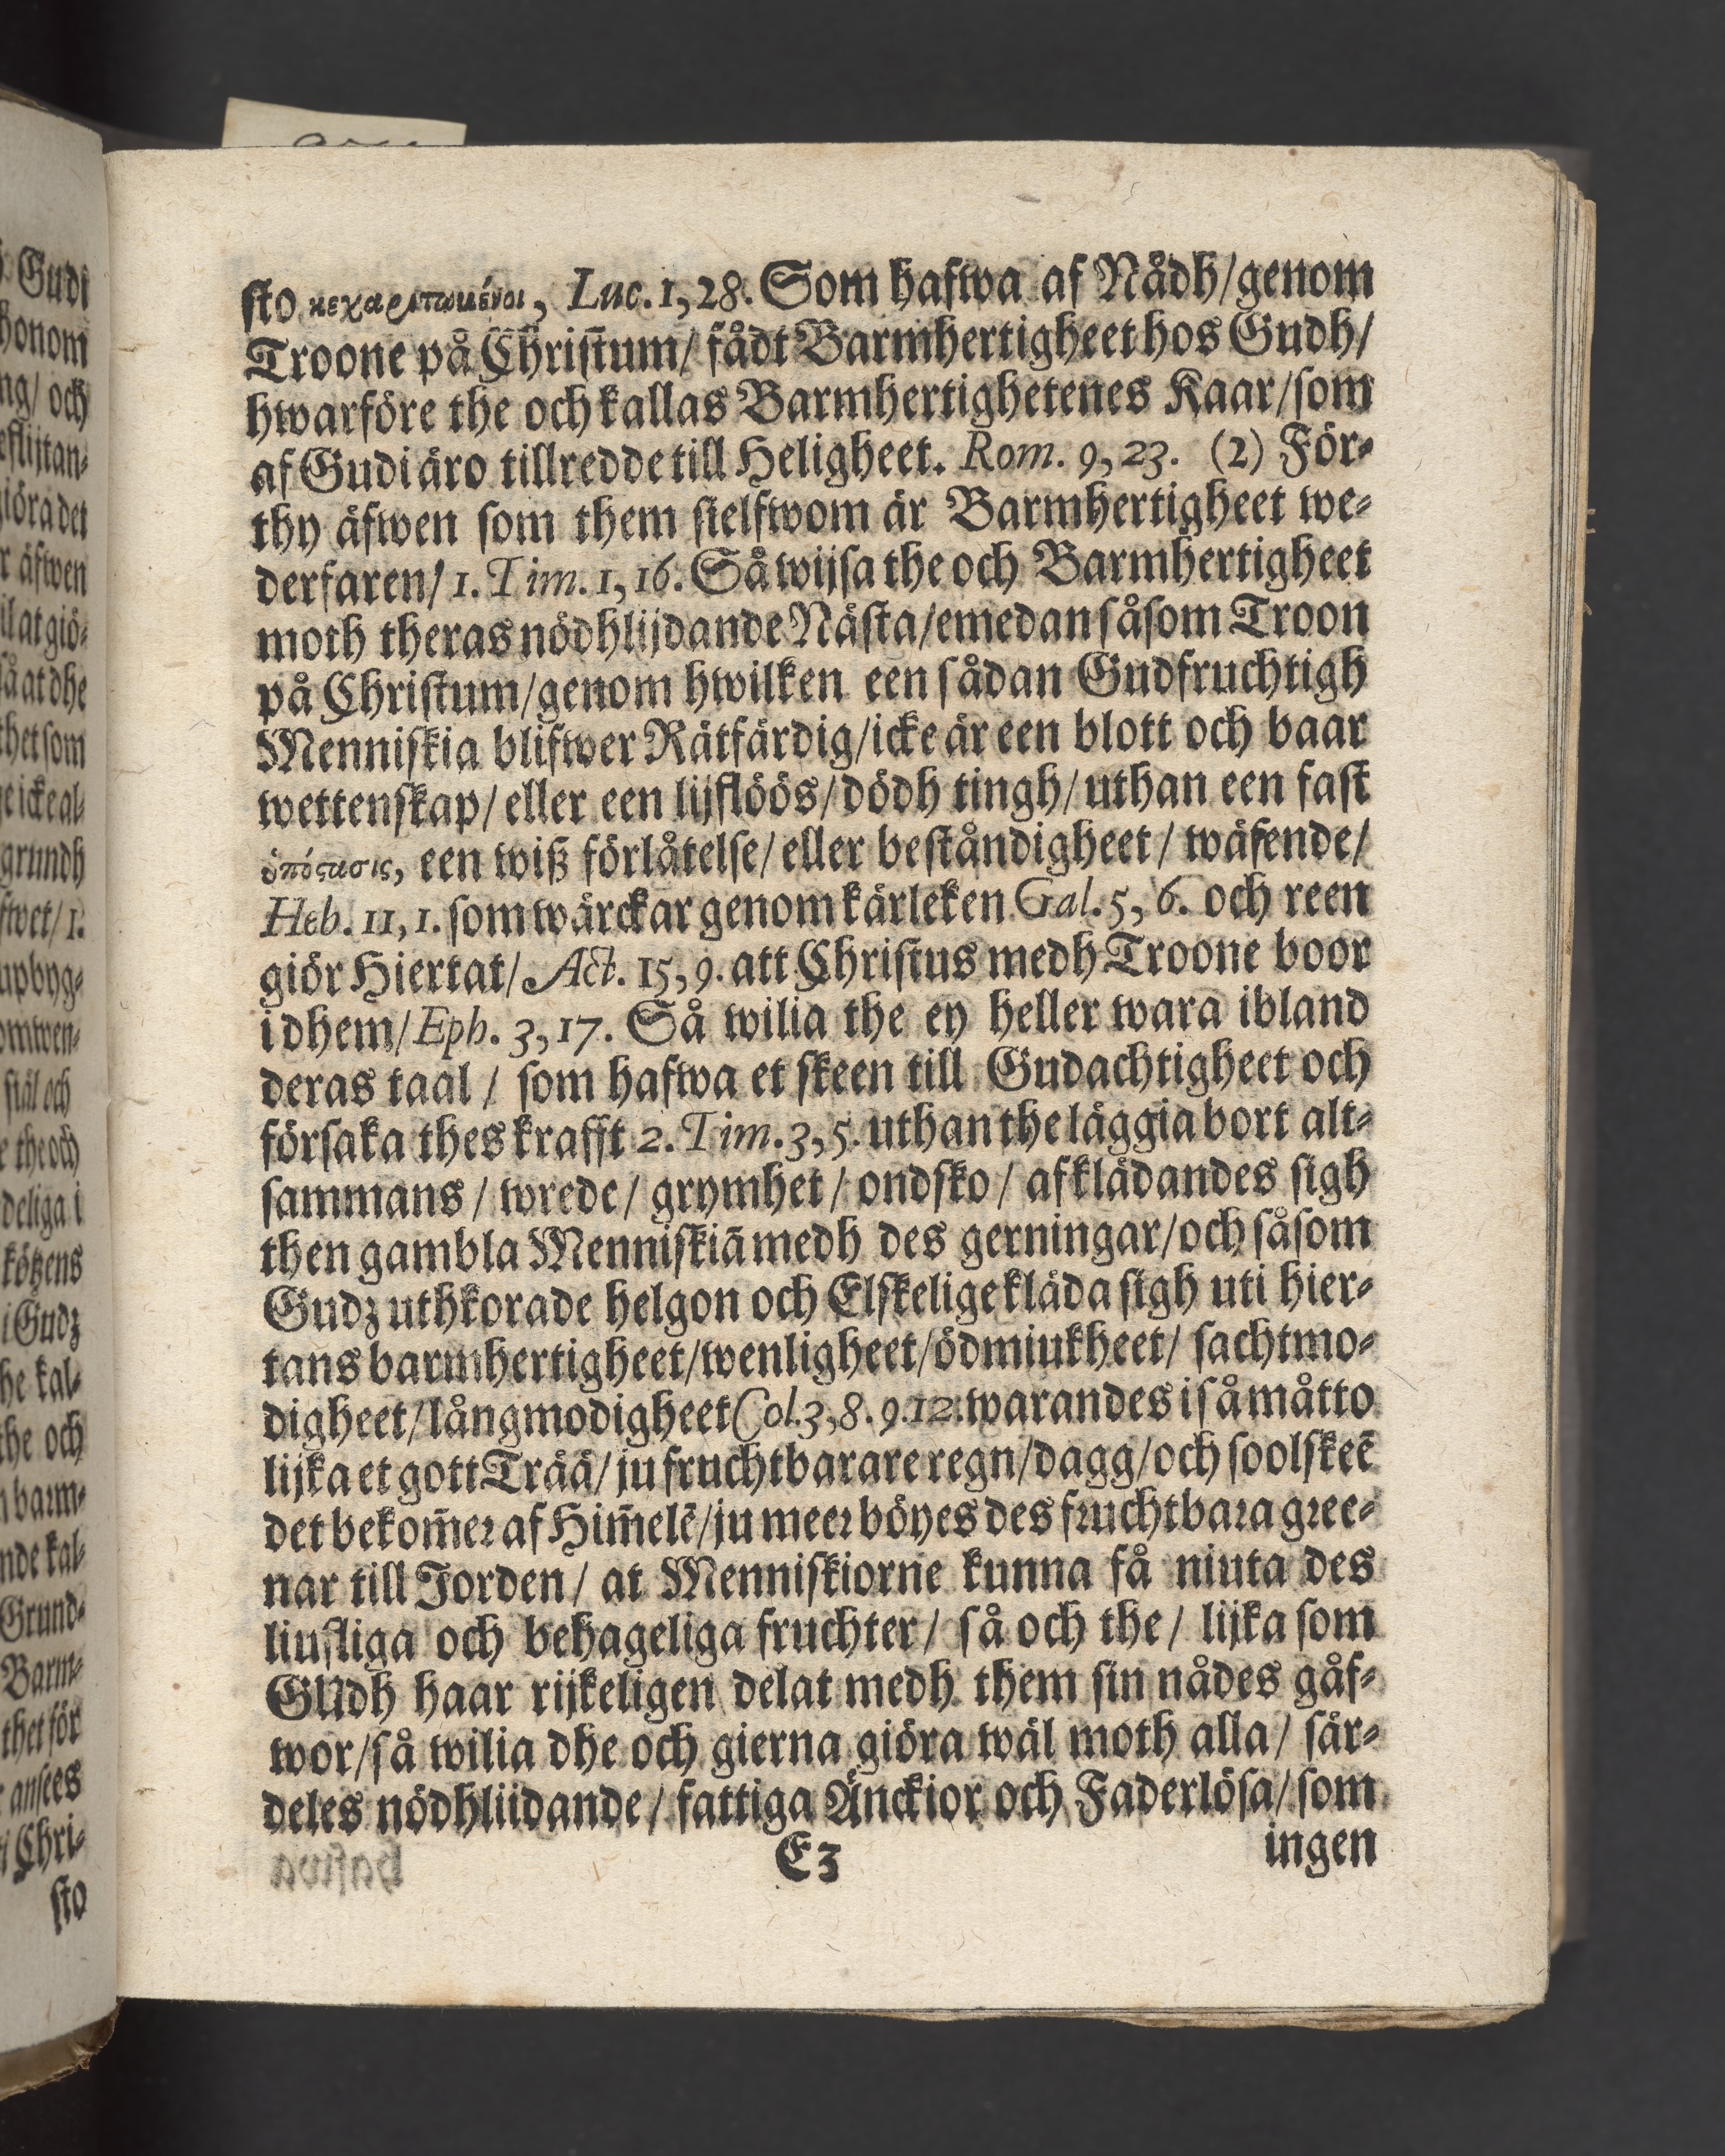 sto κεχαριτωμένοι, Luc. 1, 28. Som hafwa af Nådh/genom
Troone på Christum/ fådt Barmhertigheet hos Gudh/
hwarföre the och kallas Barmhertighetenes Kaar/som
af Gudi äro tillredde till Heligheet. Rom. 9, 23. (2) För-
thy äfwen som them sielfwom är Barmhertigheet we-
derfaren/ 1. Tim. 1, 16. Så wijsa the och Barmhertigheet
moth theras nödhlijdande Nästa/emedan såsom Troon
på Christum/genom hwilken een sådan Gudfruchtigh
Menniskia blifwer Rätfärdig/icke är een blott och baar
wettenskap/ eller een lijflöös/dödh tingh/uthan een fast
ὑπόςασις, een wiß förlåtelse/ eller beståndigheet/ wäsende/
Heb. 11, 1. som wärckar genom kärleken Gal. 5, 6. och reen
giör Hiertat/ Act. 15, 9. att Christus medh Troone boor
i dhem/ Eph. 3, 17. Så wilia the ey heller wara ibland
deras taal / som hafwa et skeen till Gudachtigheet och
försaka thes krafft 2. Tim. 3, 5. uthan the läggia bort alt-
sammans / wrede/ grymhet / ondsko / afklädandes sigh
then gambla Menniskiā medh des gerningar/och såsom
Gudz uthkorade helgon och Elskelige kläda sigh uti hier-
tans barmhertigheet/wenligheet/ödmiukheet/ sachtmo-
digheet/långmodigheet Col. 3, 8. 9. 12. warandes i så måtto
lijka et gott Trää/ ju fruchtbarare regn/dagg/och soolskeē
det bekom̄er af Him̄elē/ju meer böyes des fruchtbara gree-
nar till Jorden/ at Menniskiorne kunna få niuta des
liufliga och behageliga fruchter/ så och the/ lijka som
GUdh haar rijkeligen delat medh them sin nådes gåf-
wor/så wilia dhe och gierna giöra wäl moth alla/ sär-
deles nödhliidande/ fattiga Änckior och Faderlösa/som
E3 ingen